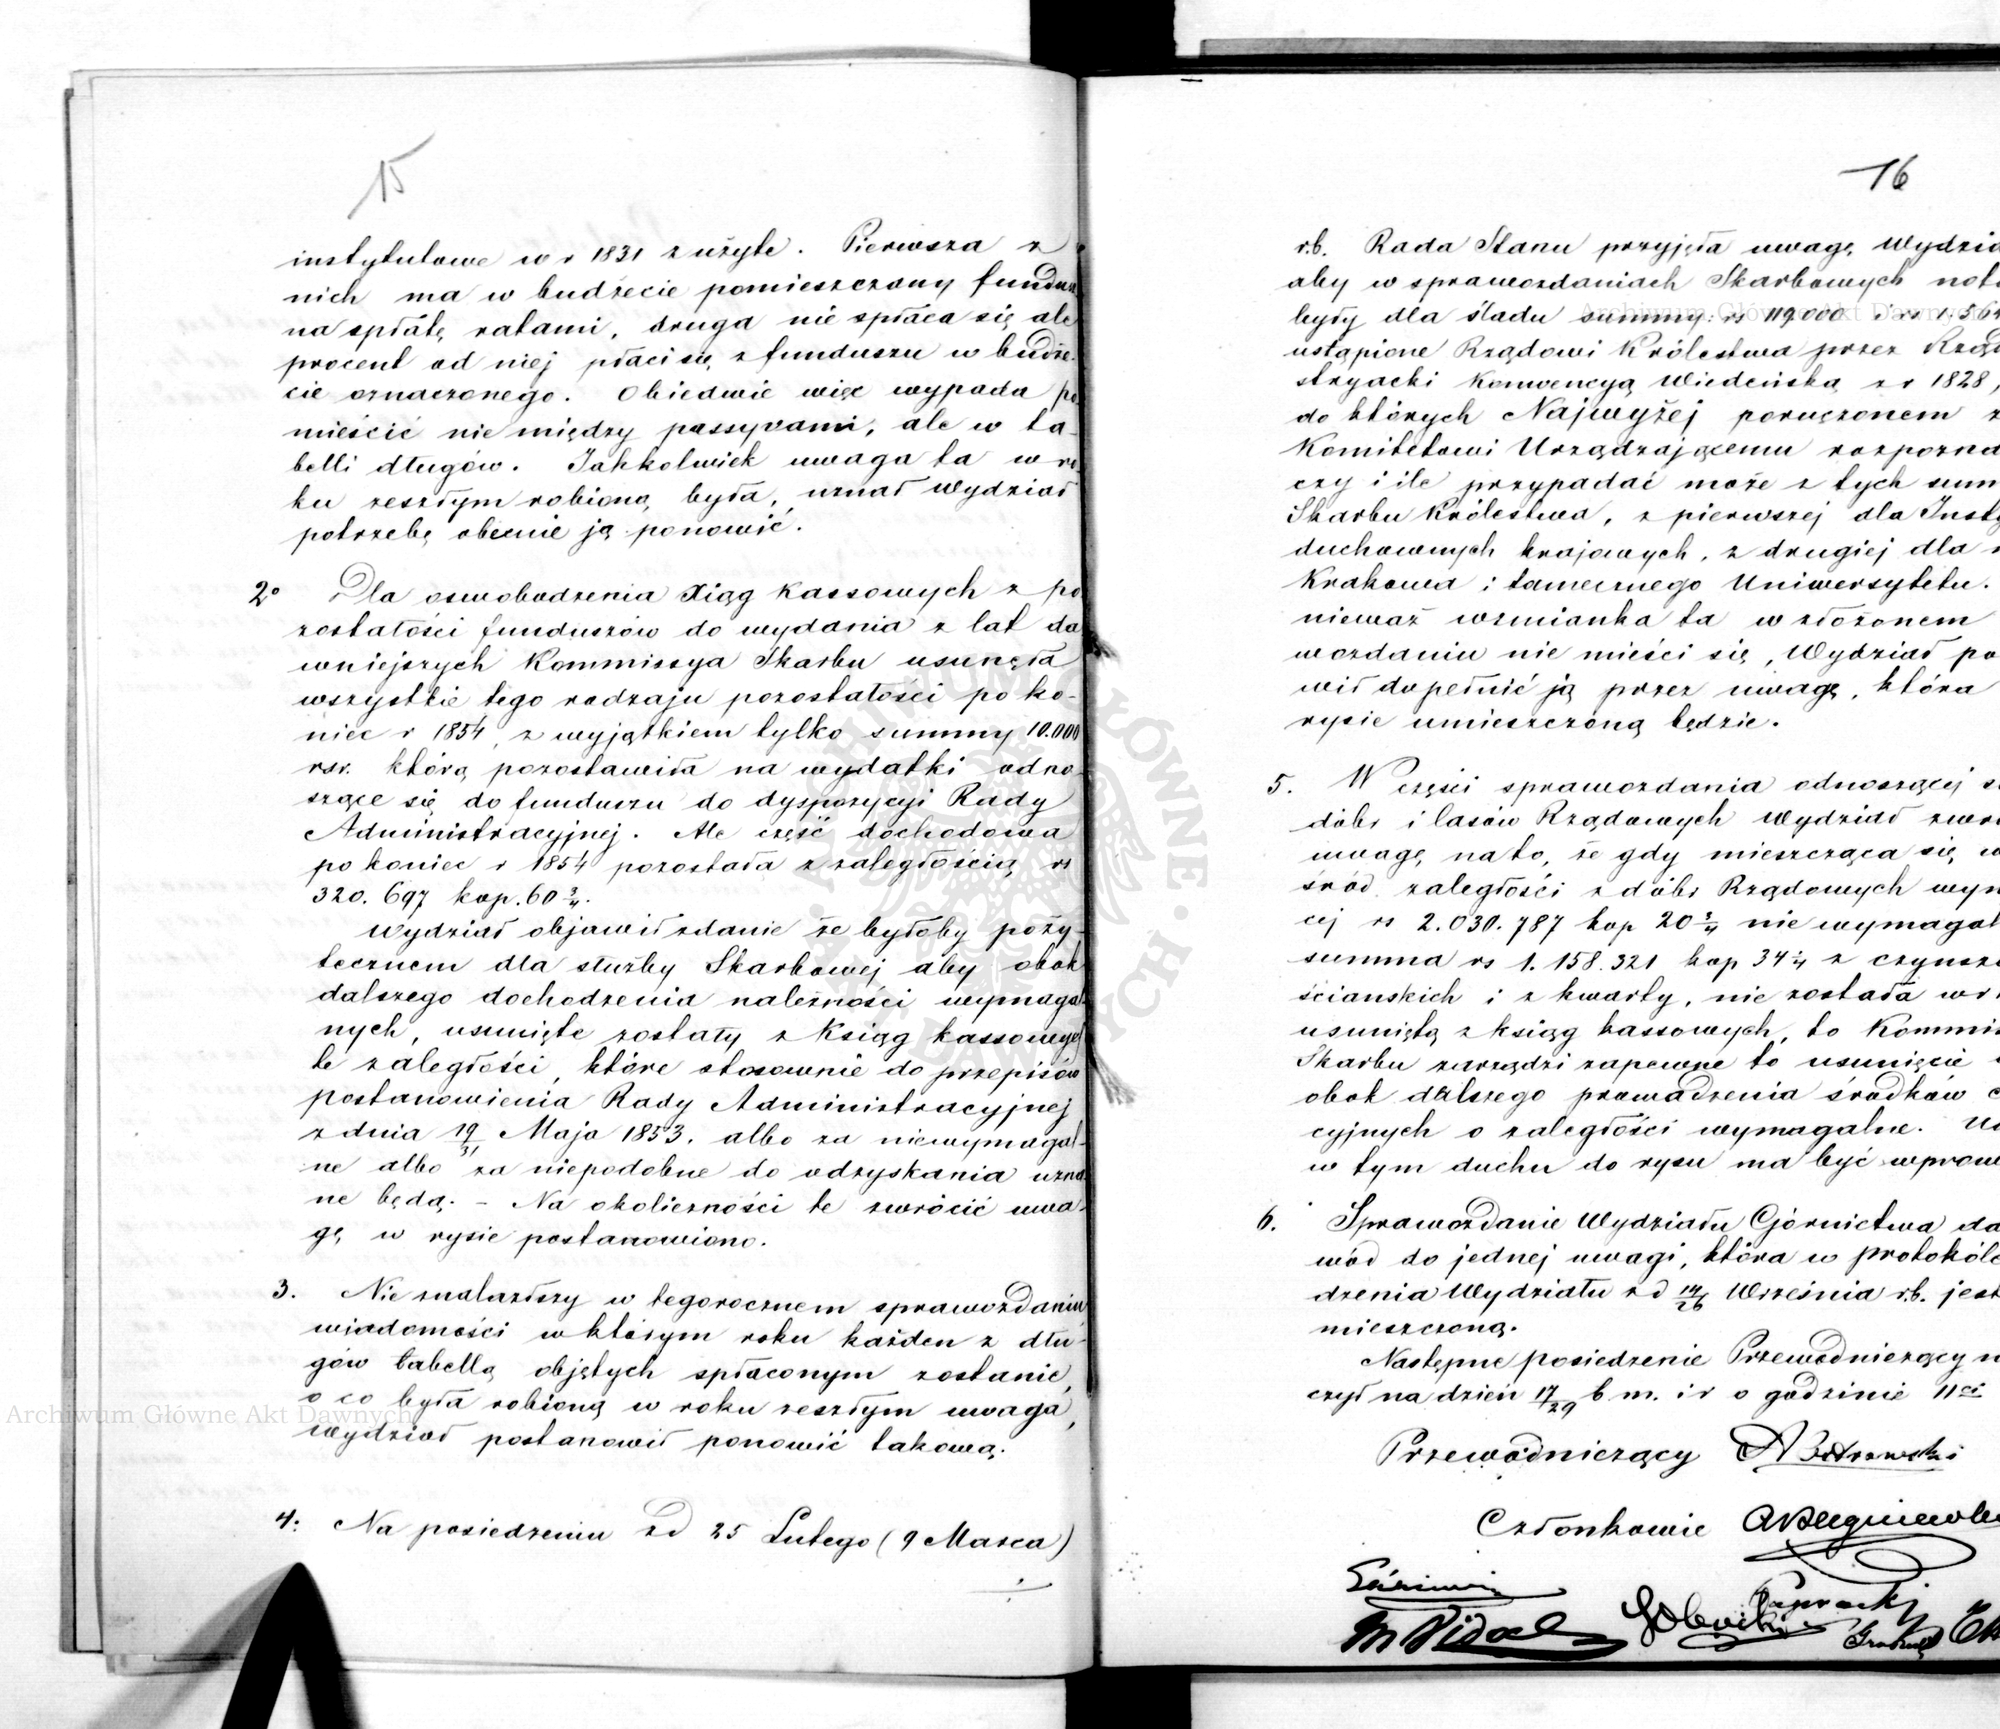 15
instytutowe w r 1831 zużyte. Pierwsza z
nich ma w budżecie pomieszczony fundusz
na spłatę ratami, druga nie spłaca się ale
procent od niej płaci się z funduszu w budże-
cie oznaczonego. Obiedwie więc wypada po
mieścić nie między passywami, ale w ta-
belli długów. Jakkolwiek uwaga ta w ro-
ku zeszłym robioną była, uznał Wydział
potrzebę obecnie ją ponowić.
2o Dla oswobodzenia Xiąg Kassowych z po
zostałości funduszów do wydania z lat da
wniejszych Kommissya Skarbu usunęła
wszystkie tego rodzaju pozostałości po ko-
niec r 1854, z wyjątkiem tylko summy 10.000
rsr. którą pozostawiła na wydatki odno-
szące się do funduszu do dyspozycyi Rady
Administracyjnej. Ale część dochodowa
po koniec r 1854 pozostała z zaległością rs
320.697 kop. 60 3/4.
Wydział objawił zdanie że byłoby poży-
tecznem dla służby Skarbowej aby obok
dalszego dochodzenia należności wymagal-
nych, usunięte zostały z Ksiąg kassowych
te zaległości, które stosownie do przepisów
postanowienia Rady Administracyjnej
z dnia 19/31 Maja 1853. albo za niewymagal-
ne albo za niepodobne do odzyskania uzna
ne będą. – Na okoliczności te zwrócić uwa-
gę w rysie postanowiono.
3. Nie znalazłszy w tegorocznem sprawozdaniu
wiadomości w którym roku każden z dłu-
gów tabellą objętych spłaconym zostanie,
o co była robioną w roku zeszłym uwaga,
Wydział postanowił ponowić takową.
4. Na posiedzeniu z d 25 Lutego (9 Marca)
16
r.b. Rada Stanu przyjęła uwagę Wydzia
aby w sprawozdaniach Skarbowych noto
były dla śladu summy: rs 119.000 i rs 1.564
ustąpione Rządowi Królestwa przez Rząd
stryacki Konwencyą Wiedeńską z r 1828,
do których Najwyżej poruczonem z
Komitetowi Urządzającemu rozpozna
czy i ile przypadać może z tych sum
Skarbu Królestwa, z pierwszej dla Insty
duchownych krajowych, z drugiej dla
Krakowa i tamecznego Uniwersytetu.
nieważ wzmianka ta w złożonem
wozdaniu nie mieści się, Wydział po
wił dopełnić ją przez uwagę, która
rysie umieszczoną będzie.
5. W części sprawozdania odnoszącej s
dóbr i lasów Rządowych Wydział zwró
uwagę na to, że gdy mieszcząca się w
śród zaległości z dóbr Rządowych wyn
cej rs 2.030.787 kop 20 3/4 nie wymagal
summa rs 1.158.321 kop 34 1/4 z czynsz
ściańskich i z kwarty, nie została w r
usuniętą z ksiąg kassowych, to Kommis
Skarbu zarządzi zapewne to usunięcie
obok dalszego prowadzenia środków
cyjnych o zaległości wymagalne. Uw
w tym duchu do rysu ma być wprow
6. Sprawozdanie Wydziału Górnictwa da
wód do jednej uwagi, która w protokóle
dzenia Wydziału z d 14/26 Września r.b. jest
mieszczoną.
Następne posiedzenie Przewodniczący
czył na dzień 17/29 b m. i r o godzinie 11ej
Przewodniczący
Członkowie
Paprocki
Archiwum Główne Akt Dawnych
Archiwum Główne Akt Dawnych
ARCHIWUM GŁÓWNE AKT DAWNYCH